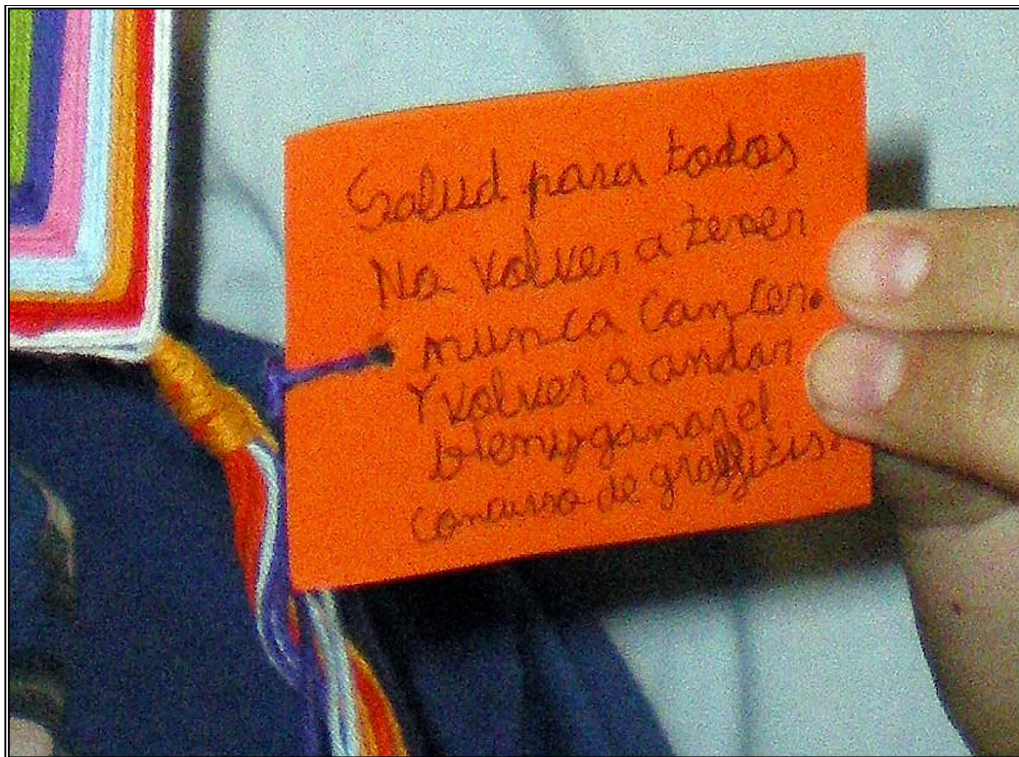 Salud para todos
No volver a tener
nunca cancer.
Y volver a andar
bien y ganar el
concurso de graffitis.